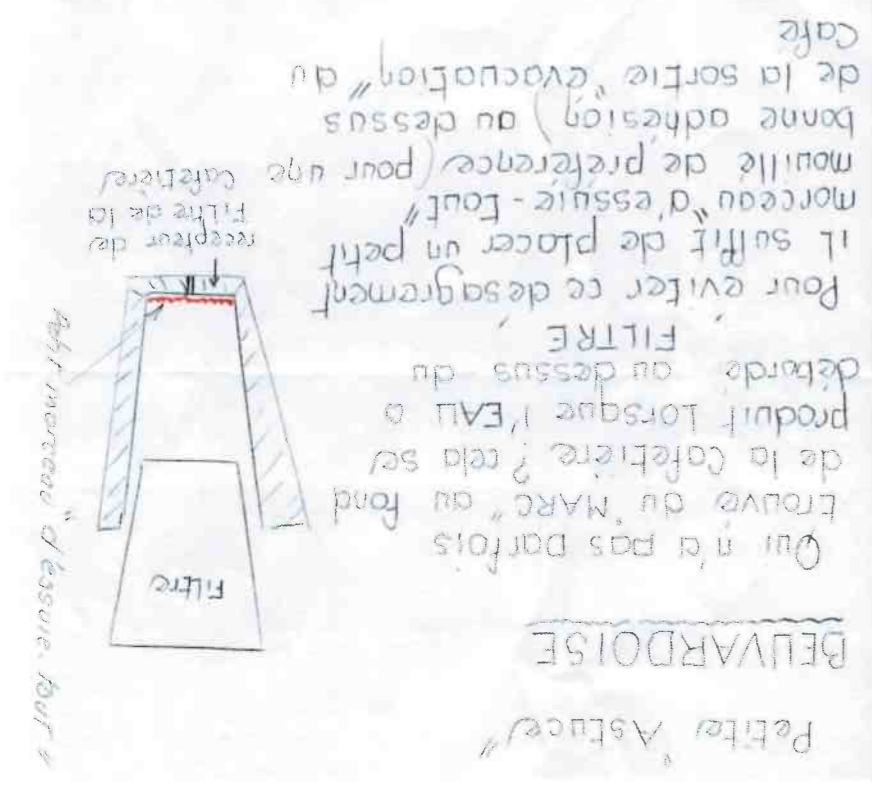 Petite "Astuce"
BEUVARDOISE
Qui n'a pas parfois
trouvé du "MARC" au fond
de la Cafetière ? cela se
produit Lorsque l'EAU a
débordé au dessus du
FILTRE
Pour éviter ce désagrément
il suffit de placer un petit
morceau "d'essuie-tout"
mouillé de préférence (pour une
bonne adhésion) au dessus
de la sortie "évacuation" du
Café
FILTRE
recepteur de
Filtre de la
Cafetière
Petit morceau "d'essuie.tout"